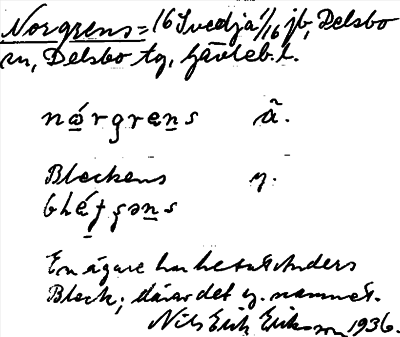 Norgrens = 16 Svedja 1/16 jb, Delsbo
sn, Delsbo tg, Gävleb. l.
nórgrens ã.
Bleckens y.
En ägare har hetat Anders
Bleck; därav det y. namnet.
Nils Erik Eriksson 1936.